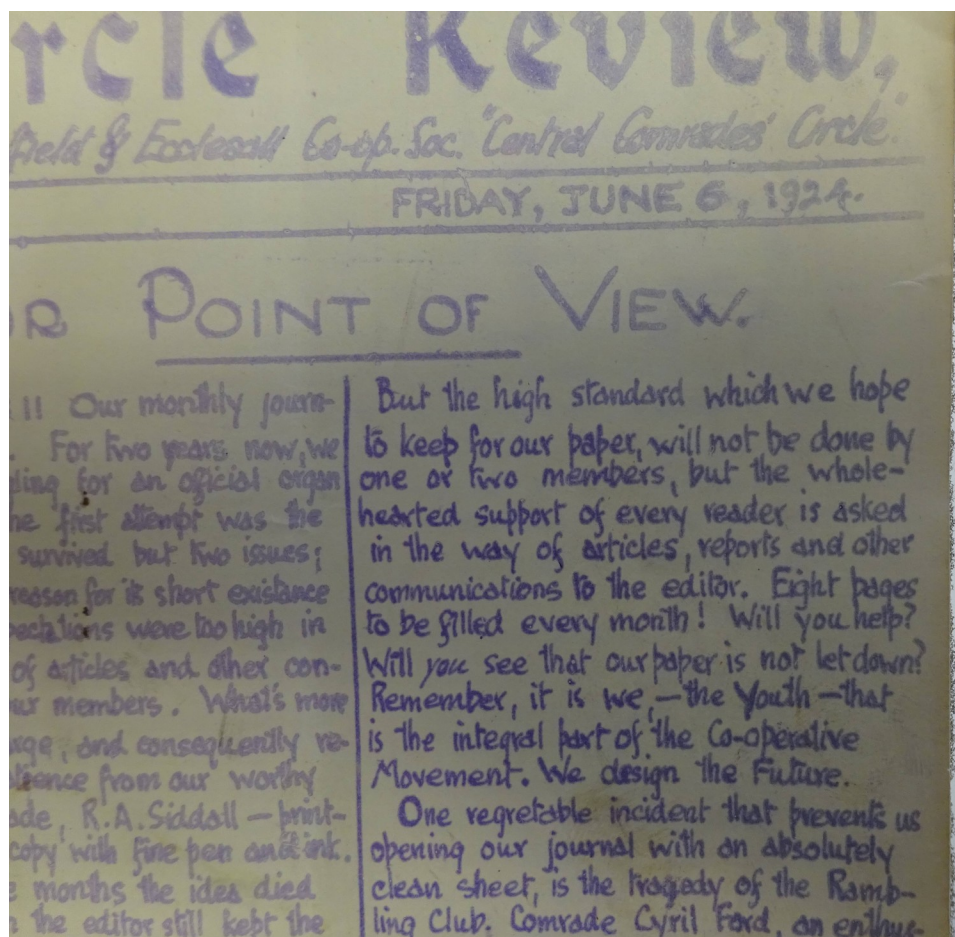 rcle Review,
field & Ecclesall Co-op. Soc. "Central Comrades' Circle."
FRIDAY, JUNE 6, 1924.
OR POINT OF VIEW.
!! Our monthly journ-
. For two years now, we
ling for an official organ
he first attempt was the
survived but two issues;
reason for its short existance
pectations were too high in
of articles and other con-
ur members. What's more
arge, and consequently re-
atience from our worthy
ade, R.A. Siddall — print-
copy with fine pen and ink.
e months the idea died
n the editor still kept the
But the high standard which we hope
to keep for our paper, will not be done by
one or two members, but the whole-
hearted support of every reader is asked
in the way of articles, reports and other
communications to the editor. Eight pages
to be filled every month! Will you help?
Will you see that our paper is not let down?
Remember, it is we, — the Youth — that
is the integral part of the Co-operative
Movement. We design the Future.
One regretable incident that prevents us
opening our journal with an absolutely
clean sheet, is the tragedy of the Ramb-
ling Club. Comrade Cyril Ford, an enthus-